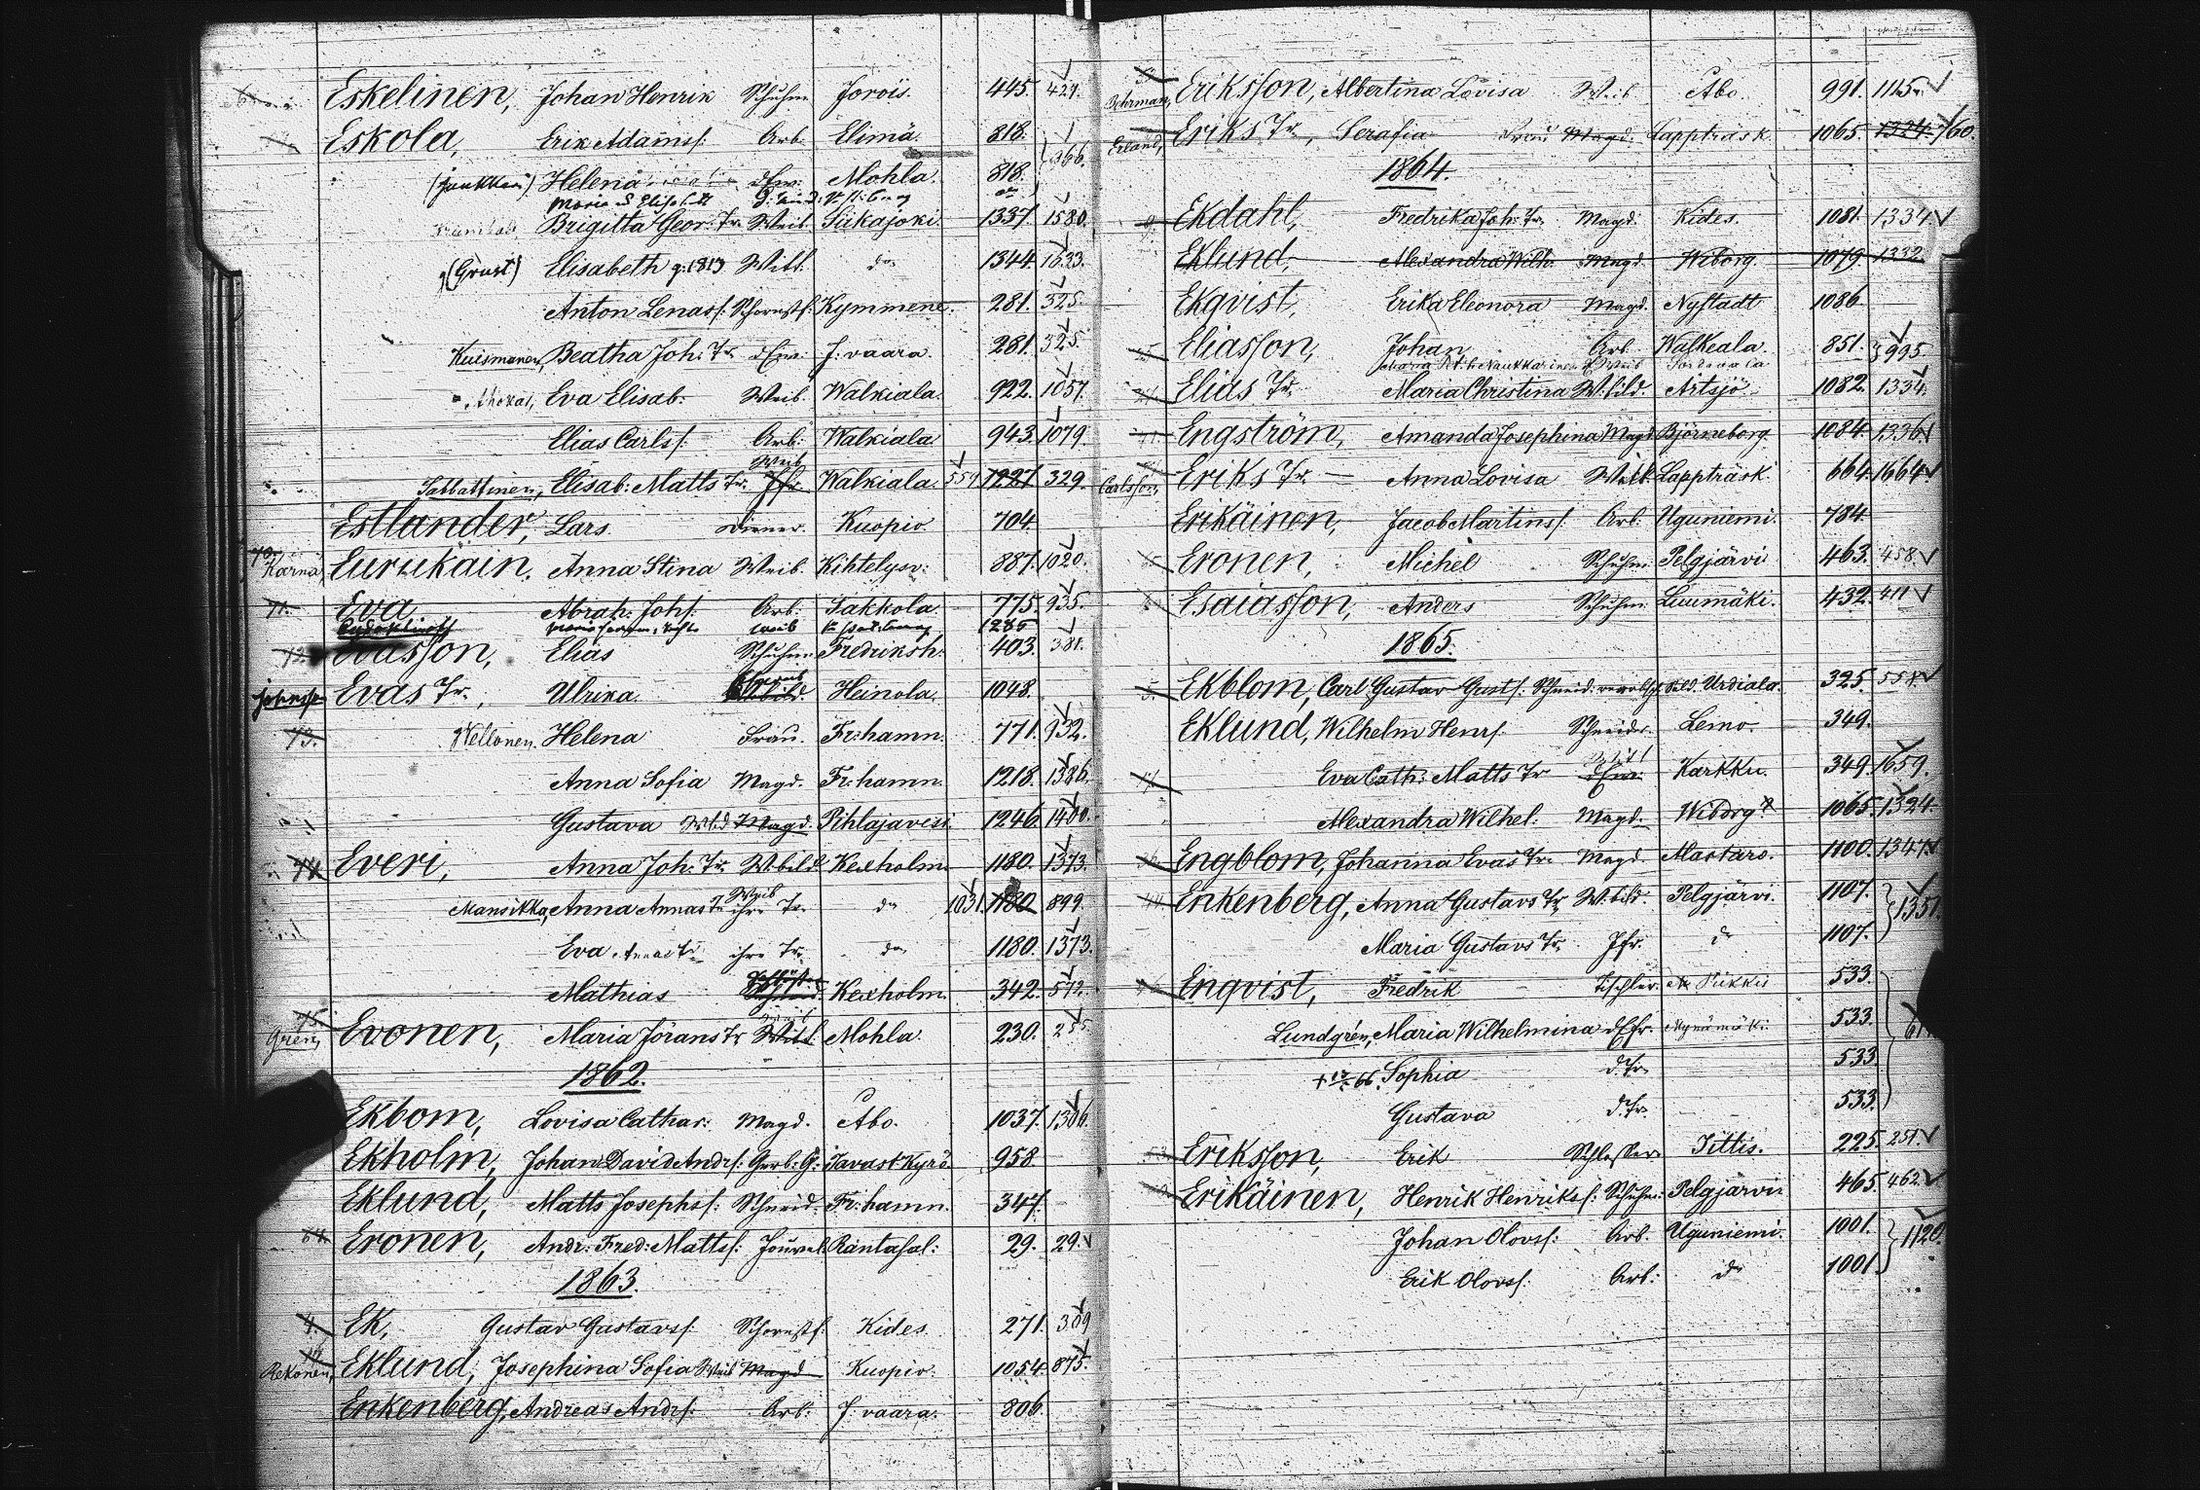 Eskelinen, Johan Henrik Schuhm Jorois. 445. 427.
Eskola, Erik Adamsf: Arb. Elimä. 818.
Helena dEw: Mohla. 818. 366.
Maria Elisabett
Brigitta Geor: Tr. Weib. Siikajoki. 1337. 1580.
(Grust) Elisabeth g: 1813 Witt: do 1344. 1633.
Anton Lenasf: Schornstf: Kymmene. 281. 325.
Kuismanen, Beatha Joh: Tr. dEw: J: vaara. 281. 325
Ahokas, Eva Elisab: Weib. Walkiala. 922. 1057.
Elias Carlsf: Arb: Walkiala 943. 1079.
Weib
Elisab: Matts Tr. Jfr. Walkiala. 559 1227 329.
Estlander, Lars. Diener. Kuopio 704
70. Kärnä, Eurukäin, Anna Stina Weib. Kihtelysv: 887. 1020.
71. Eva Abrah: Johf. Arb: Sakkola. 775. 935.
weib 1285
72. Evasson, Elias Schuhm: Fredriksh: 403. 381.
Evas Tr., Ulrika. Heinola. 1048.
73. Wellonen, Helena Frau. Fr: hamn. 771. 932.
Anna Sofia Magd. Fr: hamn. 1218. 1386.
Gustava Wbd Magd. Pihlajavesi. 1246. 1400.
74. Everi, Anna Joh: Tr. W. bild Kexholm. 1180. 1373.
Weib
Mansikka, Anna Annas Tr. ihre Tr. do 1031. 1180 899.
Eva Annas Tr. ihre Tr. do 1180. 1373.
Mathias Kexholm. 342. 572.
75. Grén, Evonen, Maria Jörans Tr. Witt: Mohla. 230. 255
1862.
Ekbom, Lovisa Cathar: Magd. Åbo. 1037. 1306.
Ekholm, Johan David Andrf: Gerb: G: Tavast Kyrö 958
Eklund, Matts Josephsf: Schneid: Fr: hamn. 347.
Eronen, Andr: Fred: Mattsf: Rantasal: 29. 29
1863.
4. Ek, Gustav Gustavsf. Schornstf. Kides. 271. 309
Rekonen, Eklund, Josephina Sofia Weib Magd Kuopio. 1054. 875.
Enkenberg, Andreas Andrf: Arb: J: vaara. 806.
Behrman, Eriksson, Albertina Lovisa Weib Åbo. 991. 1115.
Erland, Eriks Tr., Serafia Frau Magd. Lappträsk. 1065. 1324. 760.
1864.
Ekdahl, Fredrika Joh: Tr. Magd: Kides. 1081. 1334
Eklund, Alexandra Wilh: Magd. Wiborg. 1079. 1332.
Ekqvist, Erika Eleonora Magd. Nystadt 1086
Eliasson, Johan Arb. Walkeala. 851. 995
Elias Tr. Maria Christina W. bild. Artsjö. 1082. 1334.
Engström, Amanda Josephina Magd. Björneborg. 1084. 1336.
Carlsson, Eriks Tr. Anna Lovisa Witt: Lappträsk. 664. 1664
Erikäinen, Jacob Martinsf. Arb: Uguniemi. 784.
Eronen, Michel Schuhm. Pelgjärvi 463. 458
Esaiasson, Anders Schuhm. Luumäki. 432. 411
1865.
Ekblom, Carl Gustav Gustf: Schneid. Urdiala. 325. 558
Eklund, Wilhelm Henrf. Schneider. Lemo. 349.
Eva Cath: Matts Tr dEw: Karkku. 349. 1659.
Alexandra Wilhel: Magd. Wiborg 1065. 1324.
Engblom, Johanna Evas Tr. Magd. Mastaro. 1100. 1347.
Enkenberg, Anna Gustavs Tr. W. bild. Pelgjärvi. 1107. 1351.
Maria Gustavs Tr. Jfr. do 1107.
Enqvist, Fredrik Tischler. St. Piikkis 533.
Lundgrén, Maria Wilhelmina dEfr. Mynämäki. 533.
+ 66. Sophia d. Tr. 533
Gustava d. Tr. 533.
Eriksson, Erik Schlosser. Pittis. 225. 251.
Erikäinen, Henrik Henriksf: Schuhm: Pelgjärvi 465. 462.
Johan Olovsf: Arb. Uguniemi. 1001. 1120.
Erik Olovsf: Arb: do 1001.